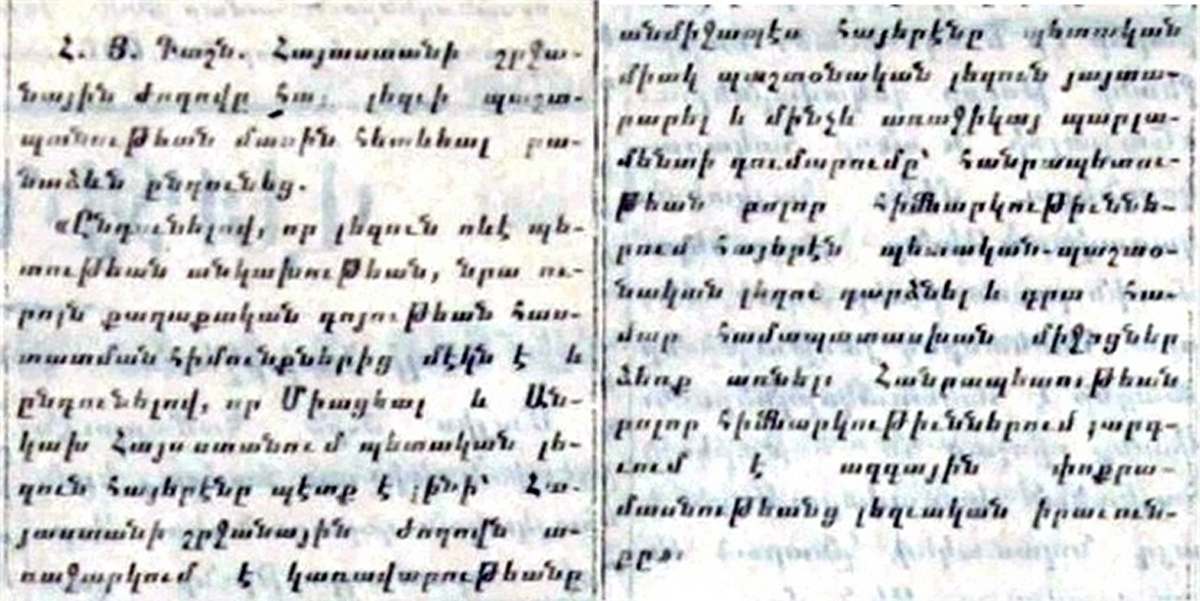 Հ. Յ. Դաշն. Հայաստանի շրջա-
նային ժողովը հայ լեզւի պաշտ-
պանութեան մասին հետեւեալ բա-
նաձեւն ընդունեց.
«Ընդունելով, որ լեզուն ոեւէ պե-
տութեան անկախութեան, նրա ու-
րոյն քաղաքական գոյութեան հաս-
տատման հիմունքներից մէկն է և
ընդունելով, որ Միացեալ և Ան-
կախ Հայաստանում պետական լե-
զուն հայերէնը պէտք է լինի՝ Հա-
յաստանի շրջանային ժողովն ա-
ռաջարկում է կառավարութեանը
անմիջապէս հայերէնը պետական
միակ պաշտօնական լեզուն յայտա-
րարել և մինչև առաջիկայ պարլա-
մենտի գումարումը՝ հանրապետու-
թեան բոլոր հիմնարկութիւննե-
րում հայերէն պետական-պաշտօ-
նական լեզուն դարձնել և դրա հա-
մար համապատասխան միջոցներ
ձեռք առնել։ Հանրապետութեան
բոլոր հիմնարկութիւններում յարգ-
ւում է ազգային փոքրա-
մասնութեանց լեզւական իրաւունք-
ըը»։